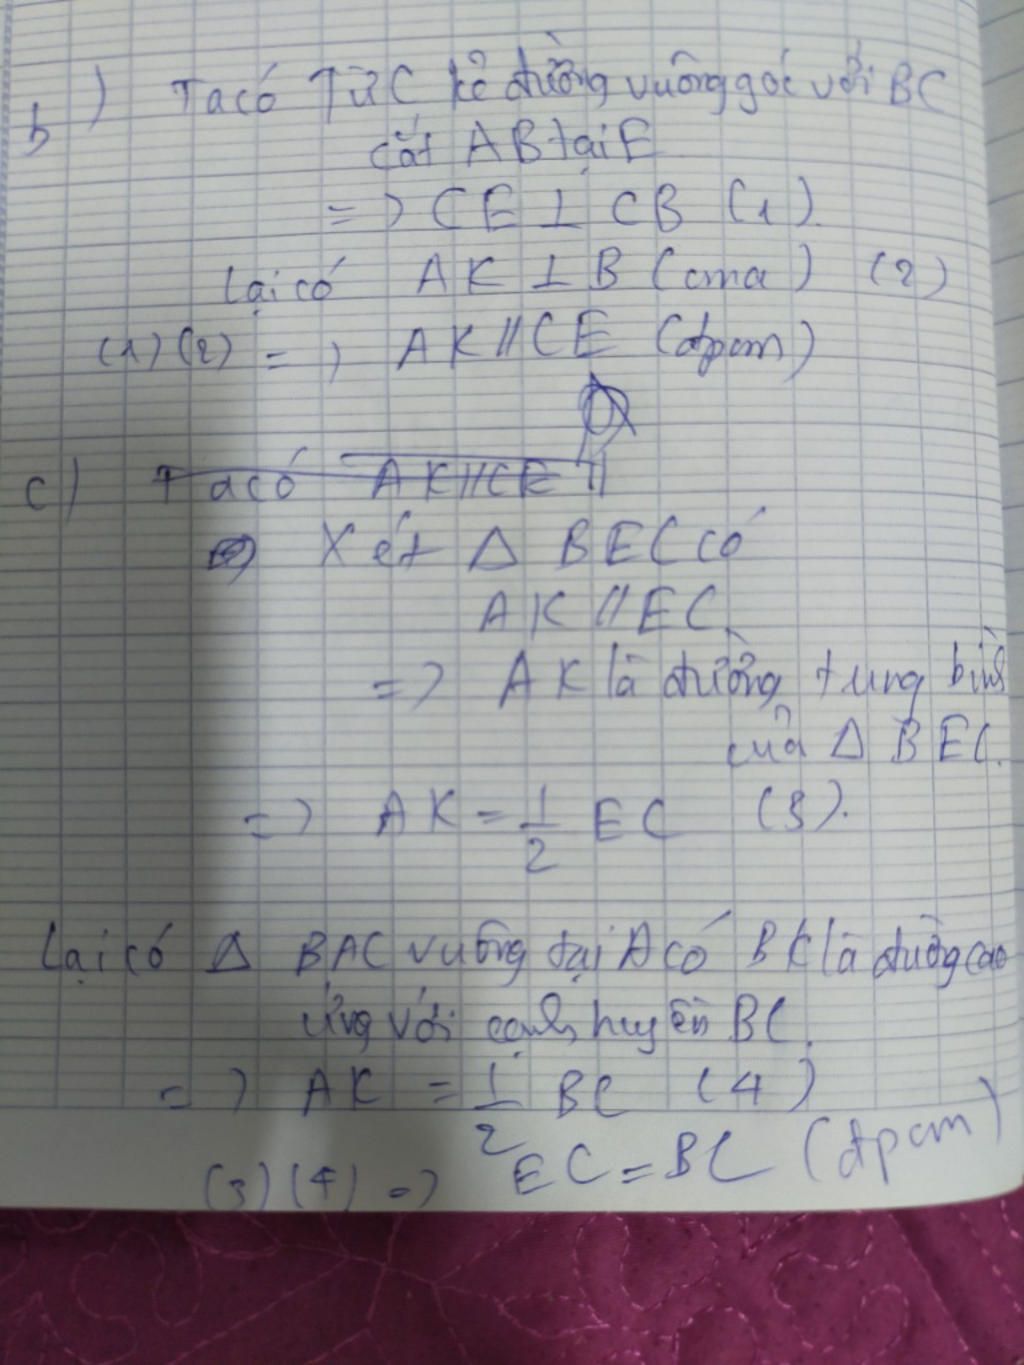 b) Ta có Từ C kẻ đường vuông góc với BC
cắt AB tại E
=> CE ⊥ CB (1).
Lại có AK ⊥ B (cma) (2)
(1)(2) => AK // CE (đpcm)
c) Ta có AK // CE
Xét Δ BEC có
AK // EC
=> AK là đường trung bình
của Δ BEC.
=> AK = 1/2 EC (3).
Lại có Δ BAC vuông tại A có BK là đường cao
ứng với cạnh huyền BC.
=> AK = 1/2 BC (4)
(3)(4) => EC = BC (đpcm)